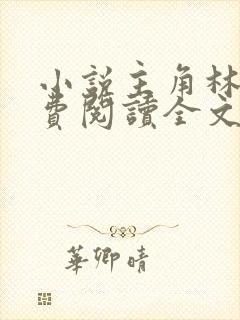 小説主角林
費閱讀全文
華卿晴